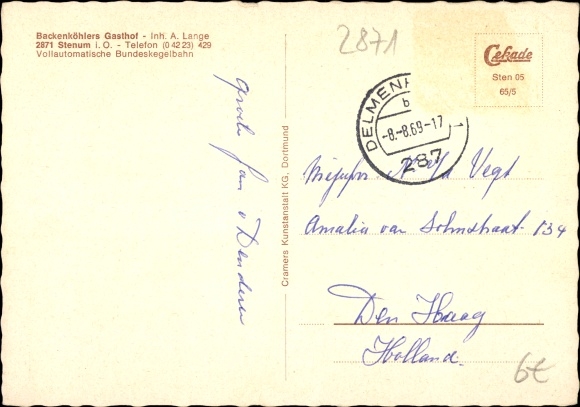 Backenköhlers Gasthof - Inh. A. Lange
2871 Stenum i. O. - Telefon (0 42 23) 429
Vollautomatische Bundeskegelbahn
2871
Cekade
Sten 05
65/5
DELMENH
b
-8.-8.69-17
287
1
Cramers Kunstanstalt KG, Dortmund
Vegt
Amalia van Solmsstraat 134
Den Haag
Holland.
v Denderen
6t